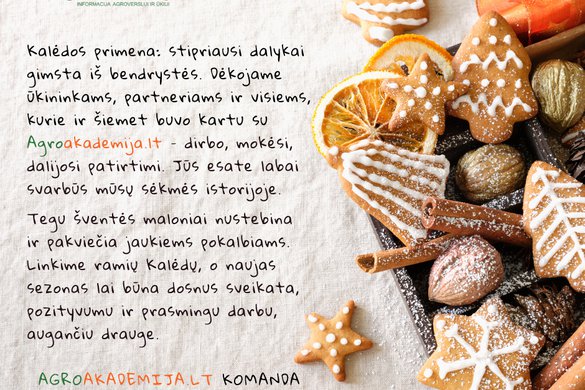 INFORMACIJA AGROVERSLUI IR ŪKIUI
Kalėdos primena: stipriausi dalykai
gimsta iš bendrystės. Dėkojame
ūkininkams, partneriams ir visiems,
kurie ir šiemet buvo kartu su
Agroakademija.lt - dirbo, mokėsi,
dalijosi patirtimi. Jūs esate labai
svarbūs mūsų sėkmės istorijoje.
Tegu šventės maloniai nustebina
ir pakviečia jaukiems pokalbiams.
Linkime ramių Kalėdų, o naujas
sezonas lai būna dosnus sveikata,
pozityvumu ir prasmingu darbu,
augančiu drauge.
AGROAKADEMIJA.LT KOMANDA